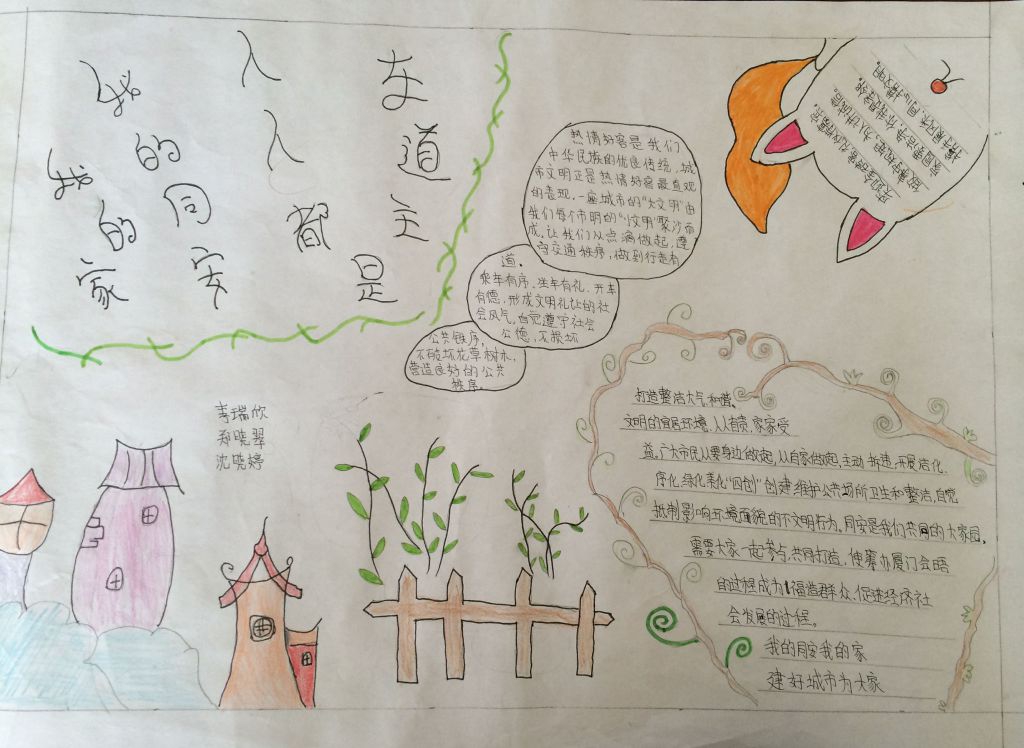 我的同安
我的家
人人都是
东道主
热情好客是我们
中华民族的优良传统,城
市文明正是热情好客最直观
的表现,一座城市的“大文明”由
我们每个市明的“小文明”聚沙而
成,让我们从点滴做起,遵
守交通秩序,做到行走有
道。
乘车有序,坐车有礼、开车
有德,形成文明礼让的社
会风气,自觉遵守社会
公德,不损坏
公共铁序,
不破坏花草树木,
营造良好的公共
秩序。
李瑞欣
郑晓翠
沈晓婷
打造整洁大气、和谐、
文明的宜居环境,人人有责,家家受
益,广大市民从要身边做起,从自家做起,主动拆违,开展洁化、
序化、绿化、美化“四创”创建,维护公共场所卫生和整洁,自觉
抵制影响环境面貌的不文明行为,同安是我们共同的大家园,
需要大家一起参与,共同打造,使筹办厦门会晤
的过程成为福造群众、促进经济社
会发展的过程。
我的同安我的家
建好城市为大家